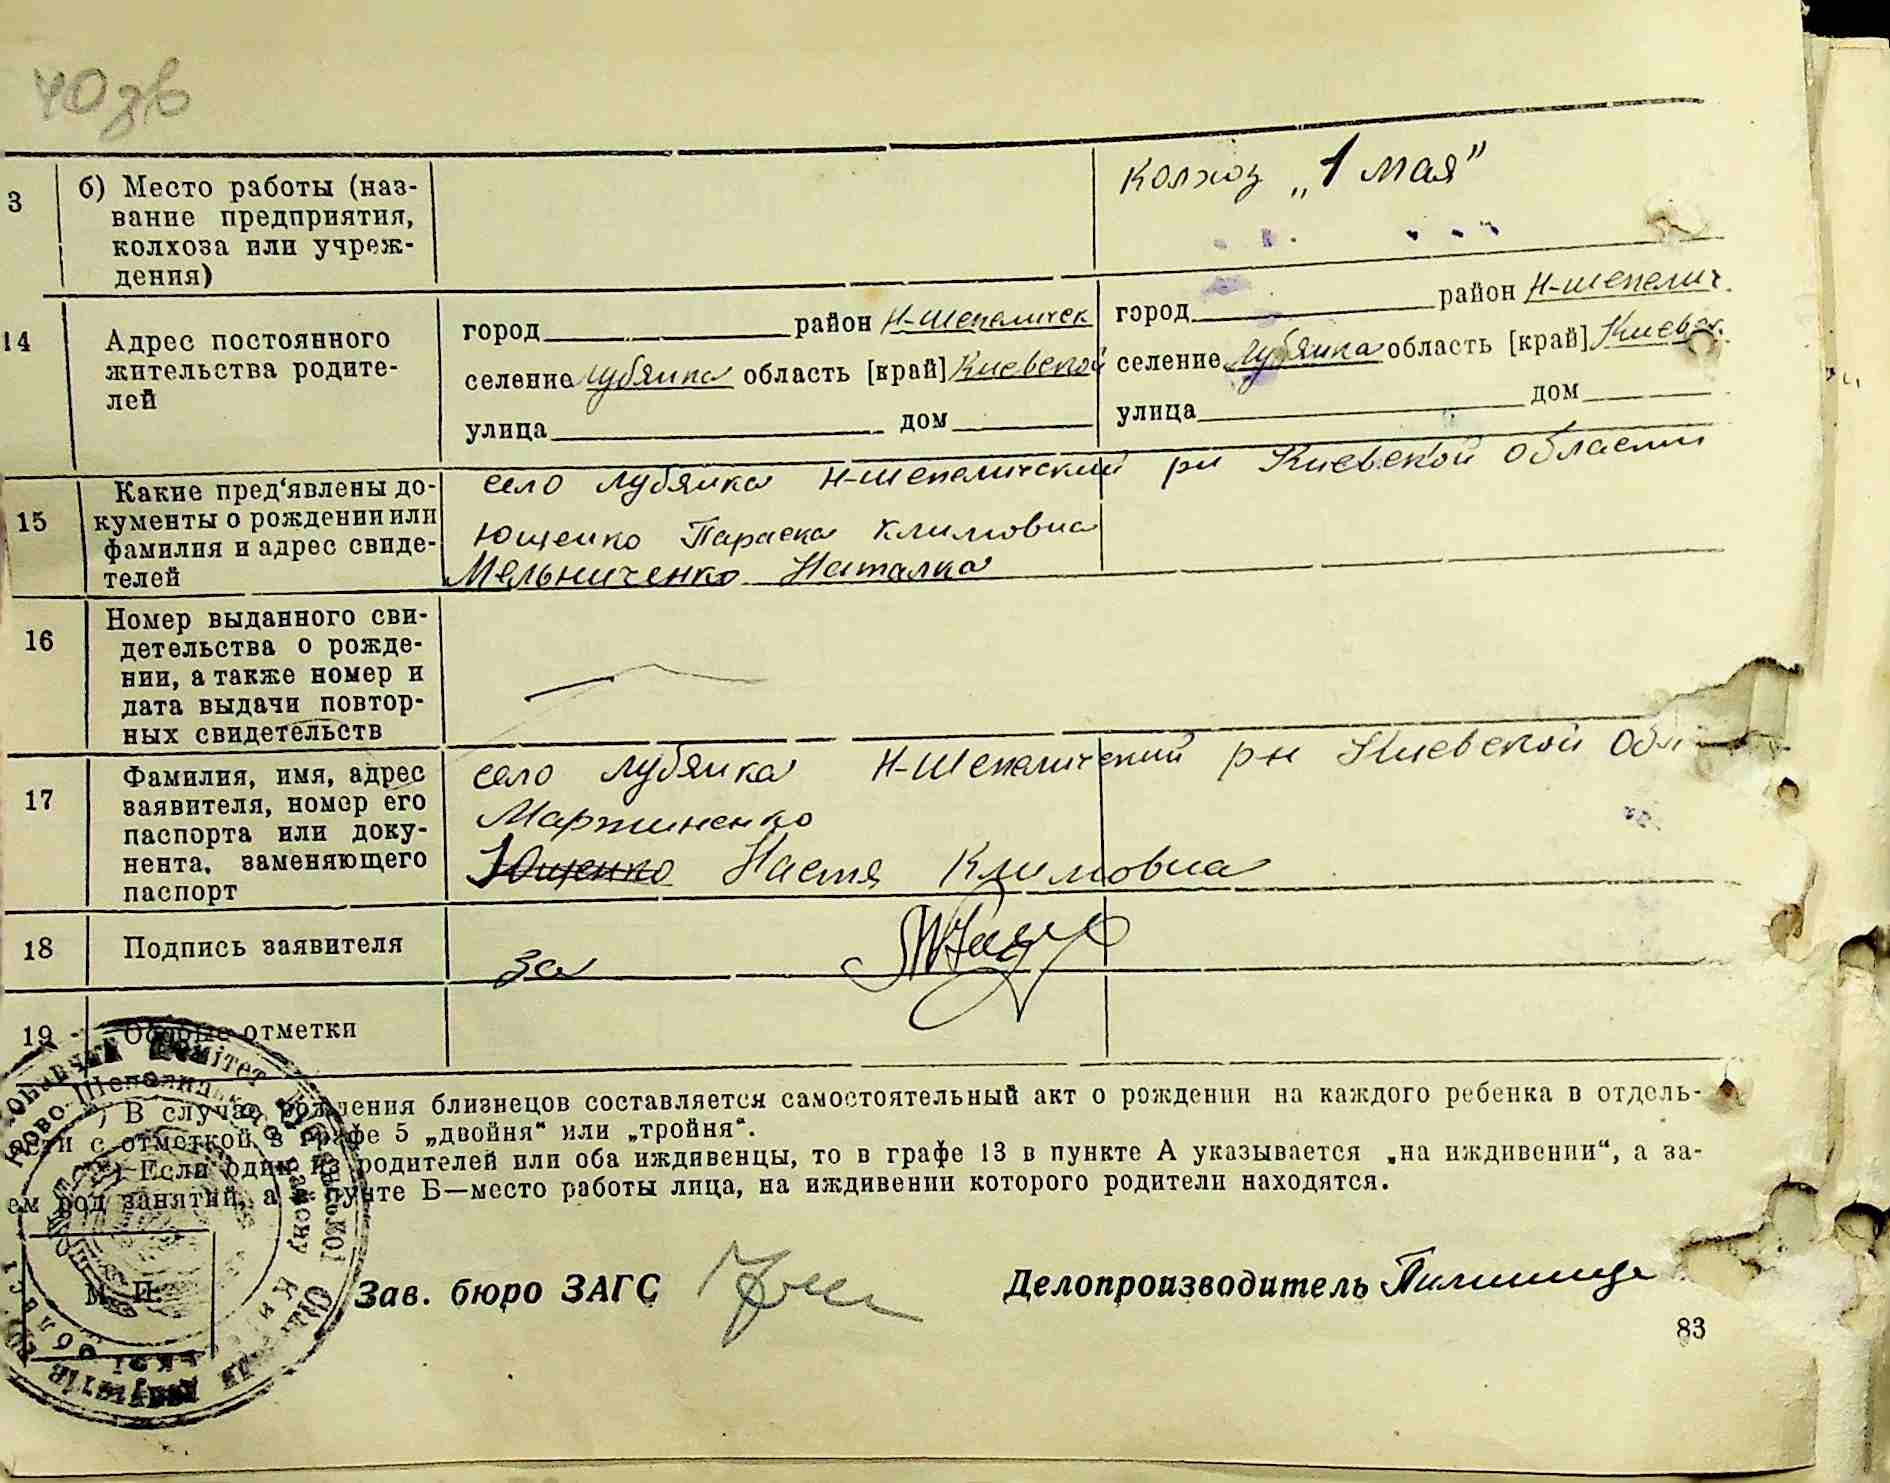 40 зв
3 б) Место работы (наз-
вание предприятия,
колхоза или учреж-
дения)
колхоз „1 мая"
14 Адрес постоянного
жительства родите-
лей
город район Н-Шепеличск
селение Лубянка область [край] Киевской
улица дом
город район Н-Шепелич
селение Лубянка область [край] Киевск.
улица дом
15 Какие пред'явлены до-
кументы о рождении или
фамилия и адрес свиде-
телей
село Лубянка Н-Шепелический рн Киевской области
Ющенко Параска Климовна
Мельниченко Наталка
16 Номер выданного сви-
детельства о рожде-
нии, а также номер и
дата выдачи повтор-
ных свидетельств
17 Фамилия, имя, адрес
заявителя, номер его
паспорта или доку-
нента, заменяющего
паспорт
село Лубянка Н-Шепелический р-н Киевской Обл
Мартиненко
Ющенко Настя Климовна
18 Подпись заявителя
за
19 Особые отметки
) В случае рождения близнецов составляется самостоятельный акт о рождении на каждого ребенка в отдель-
ости с отметкой в графе 5 „двойня“ или „тройня“.
) Если один из родителей или оба иждивенцы, то в графе 13 в пункте А указывается „на иждивении“, а за-
ем род занятий, а в пункте Б—место работы лица, на иждивении которого родители находятся.
М. П.
Зав. бюро ЗАГС
Делопроизводитель
83